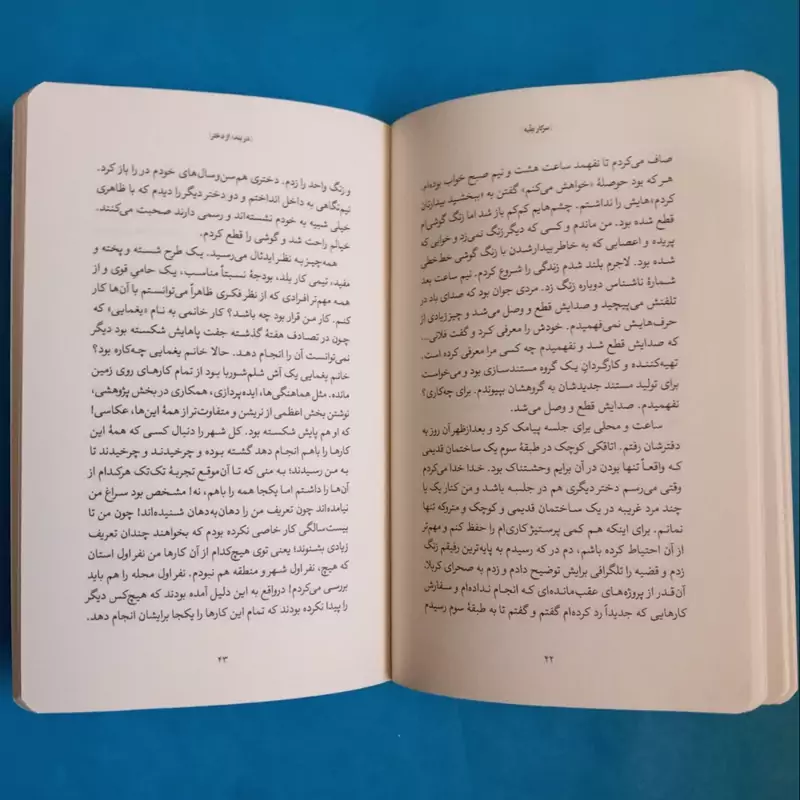 سرکار علیه
صاف می‌کردم تا نفهمد ساعت هشت و نیم صبح خواب بوده‌ام.
هر که بود حوصلهٔ «خواهش می‌کنم» گفتن به «ببخشید بیدارتان
کردم»هایش را نداشتم. چشم‌هایم کم‌کم باز شد اما زنگ گوشی‌ام
قطع شده بود. من ماندم و کسی که دیگر زنگ نمی‌زد و خوابی که
پریده و اعصابی که به خاطر بیدارشدن با زنگ گوشی خط‌خطی
شده بود. لاجرم بلند شدم زندگی را شروع کردم. نیم ساعت بعد
شمارهٔ ناشناس دوباره زنگ زد. مردی جوان بود که صدای باد در
تلفنش می‌پیچید و صدایش قطع و وصل می‌شد و چیز زیادی از
حرف‌هایش نمی‌فهمیدم. خودش را معرفی کرد و گفت فلانی...
که صدایش قطع شد و نفهمیدم چه کسی مرا معرفی کرده است.
تهیه‌کننده و کارگردانِ یک گروه مستندسازی بود و می‌خواست
برای تولید مستند جدیدشان به گروهشان بپیوندم. برای چه‌کاری؟
نفهمیدم. صدایش قطع و وصل می‌شد.
ساعت و محلی برای جلسه پیامک کرد و بعدازظهر آن روز به
دفترشان رفتم. اتاقکی کوچک در طبقهٔ سوم یک ساختمان قدیمی
که واقعاً تنها بودن در آن برایم وحشتناک بود. خدا خدا می‌کردم
وقتی می‌رسم دختر دیگری هم در جلسه باشد و من کنار یک یا
چند مرد غریبه در یک ساختمان قدیمی و کوچک و متروکه تنها
نمانم. برای اینکه هم کمی پرستیژ کاری‌ام را حفظ کنم و مهم‌تر
از آن احتیاط کرده باشم، دم در که رسیدم به پایه‌ترین رفیقم زنگ
زدم و قضیه را تلگرافی برایش توضیح دادم و زدم به صحرای کربلا.
آن‌قدر از پروژه‌های عقب‌مانده‌ای که انجام نداده‌ام و سفارش
کارهایی که جدیداً رد کرده‌ام گفتم و گفتم تا به طبقهٔ سوم رسیدم
۴۲
در بند: از دختر
و زنگ واحد را زدم. دختری هم‌سن‌وسال‌های خودم در را باز کرد.
نیم‌نگاهی به داخل انداختم و دو دختر دیگر را دیدم که با ظاهری
خیلی شبیه به خودم نشسته‌اند و رسمی دارند صحبت می‌کنند.
خیالم راحت شد و گوشی را قطع کردم.
همه‌چیز به نظر ایدئال می‌رسید. یک طرح شسته و پخته و
مفید، تیمی کار بلد، بودجهٔ نسبتاً مناسب، یک حامیِ قوی و از
همه مهم‌تر افرادی که از نظر فکری ظاهراً می‌توانستم با آن‌ها کار
کنم. کار من قرار بود چه باشد؟ کار خانمی به نام «یغمایی» که
چون در تصادف هفتهٔ گذشته جفت پاهایش شکسته بود دیگر
نمی‌توانست آن را انجام دهد. حالا خانم یغمایی چه‌کاره بود؟
خانم یغمایی یک آش شلم‌شوربا بود از تمام کارهای روی زمین
مانده. مثل هماهنگی‌ها، ایده‌پردازی، همکاری در بخش پژوهشی،
نوشتن بخش اعظمی از نریشن و متفاوت‌تر از همهٔ این‌ها، عکاسی!
که او هم پایش شکسته بود. کل شهر را دنبال کسی که همهٔ این
کارها را باهم انجام دهد گشته بوده و چرخیدند و چرخیدند تا
به من رسیدند؛ به منی که تا آن‌موقع تجربهٔ تک‌تک هرکدام از
آن‌ها را داشتم اما یکجا همه را باهم، نه! مشخص بود سراغ من
نیامده‌اند چون تعریف من را دهان‌به‌دهان شنیده‌اند! چون من تا
بیست‌سالگی کار خاصی نکرده بودم که بخواهند چندان تعریف
زیادی بشنوند؛ یعنی توی هیچ‌کدام از آن کارها من نفر اول استان
که هیچ، نفر اول شهر و منطقه هم نبودم. نفر اول محله را هم باید
بررسی می‌کردم! درواقع به این دلیل آمده بودند که هیچ‌کس دیگر
را پیدا نکرده بودند که تمام این کارها را یکجا برایشان انجام دهد.
۴۳